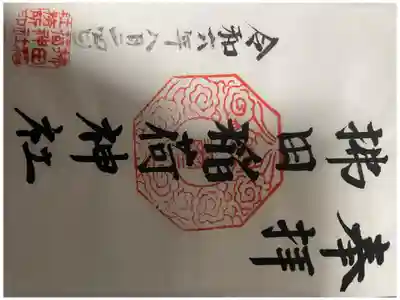 奉拝
拂田稲荷神社
令和六年八月二